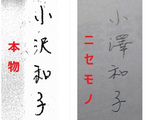 本物
小沢和子
ニセモノ
小澤和子